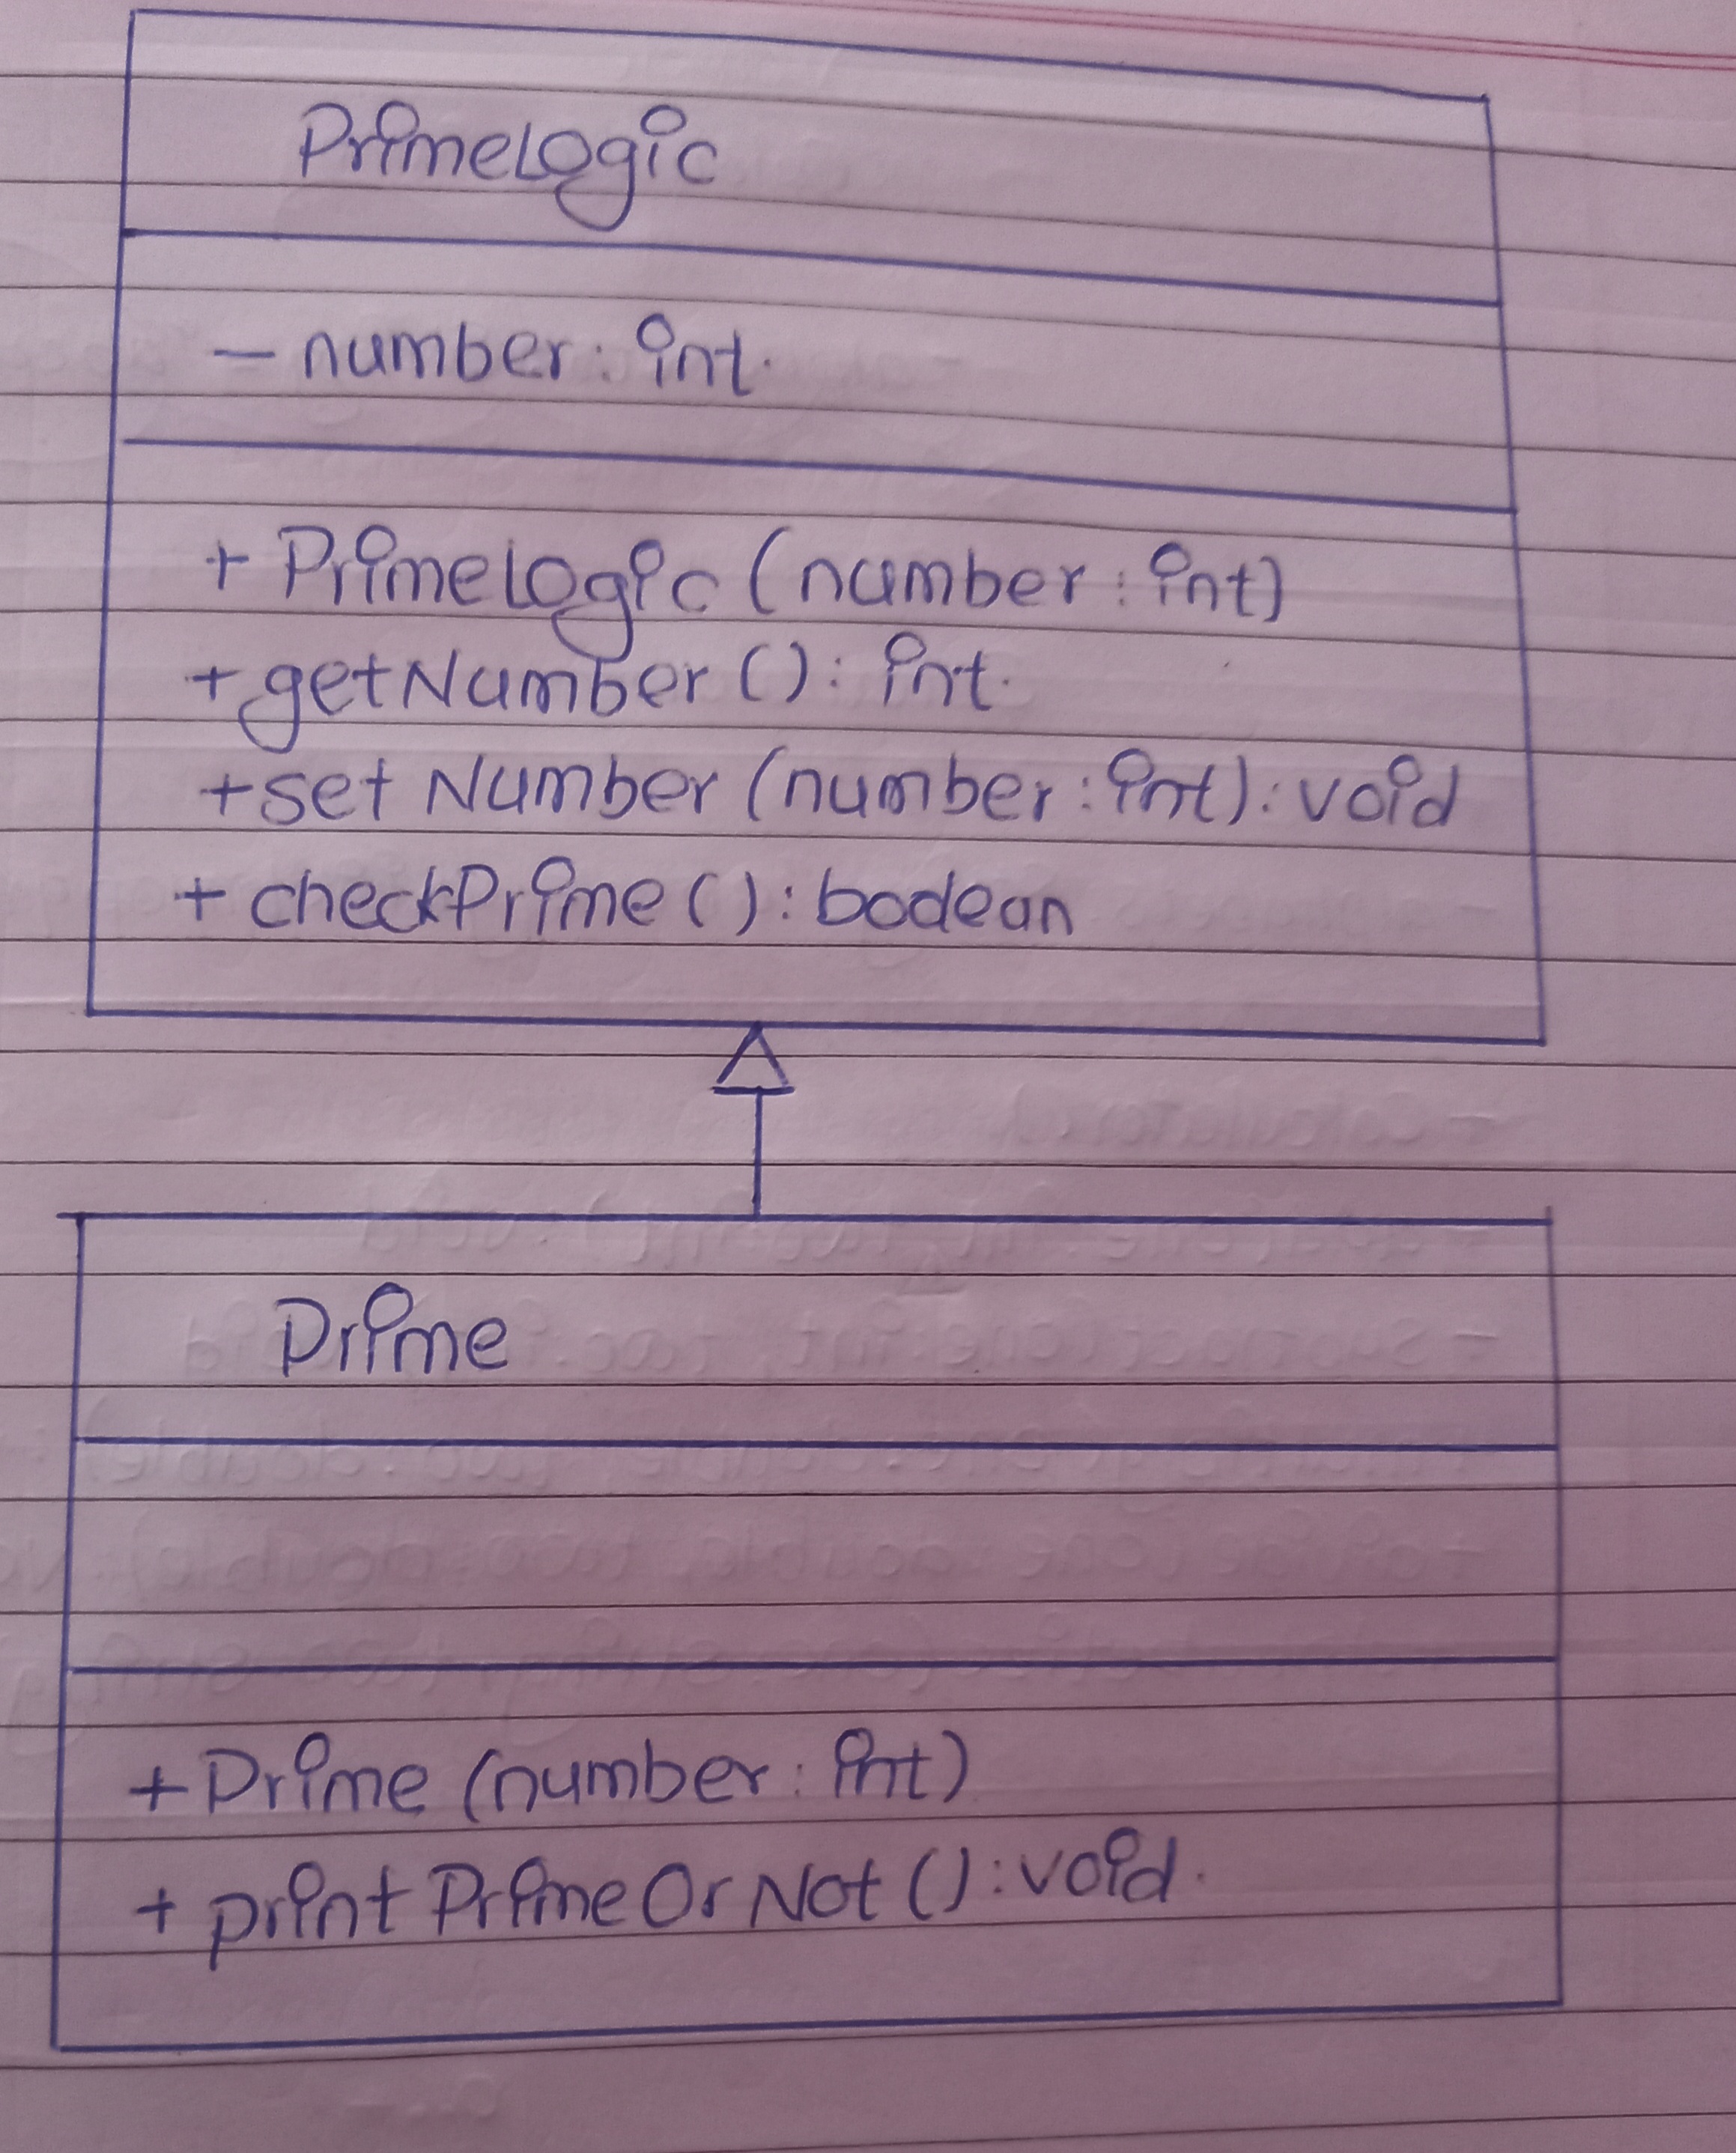 PrimeLogic
- number: int.
+ PrimeLogic (number: int)
+ getNumber (): int.
+ set Number (number: int): void
+ checkPrime (): boolean
Prime
+ Prime (number: int)
+ print Prime Or Not (): void.